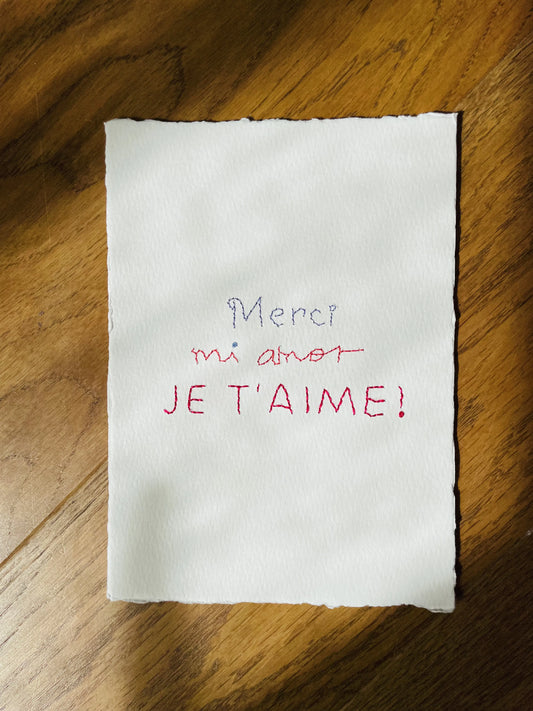 Merci
mi amor
JE T'AIME!